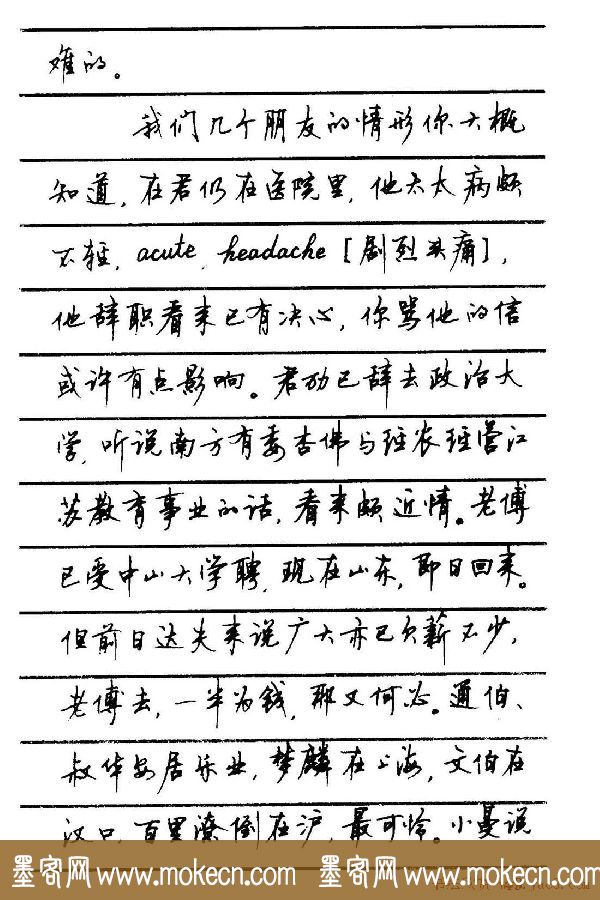 难的。
我们几个朋友的情形你大概
知道，在君仍在医院里，他太太病颇
不轻，acute headache［剧烈头痛］，
他辞职看来已有决心，你骂他的信
或许有点影响。君劢已辞去政治大
学，听说南方有委杏佛与经农经营江
苏教育事业的话，看来颇近情。老傅
已受中山大学聘，现在山东，即日回来。
但前日达夫来说广大亦已欠薪不少，
老傅去，一半为钱，那又何必。通伯、
叔华安居乐业，梦麟在上海，文伯在
汉口，百里潦倒在沪，最可怜。小曼说
墨客网 www.mokecn.com 墨客网 www.mokecn.com